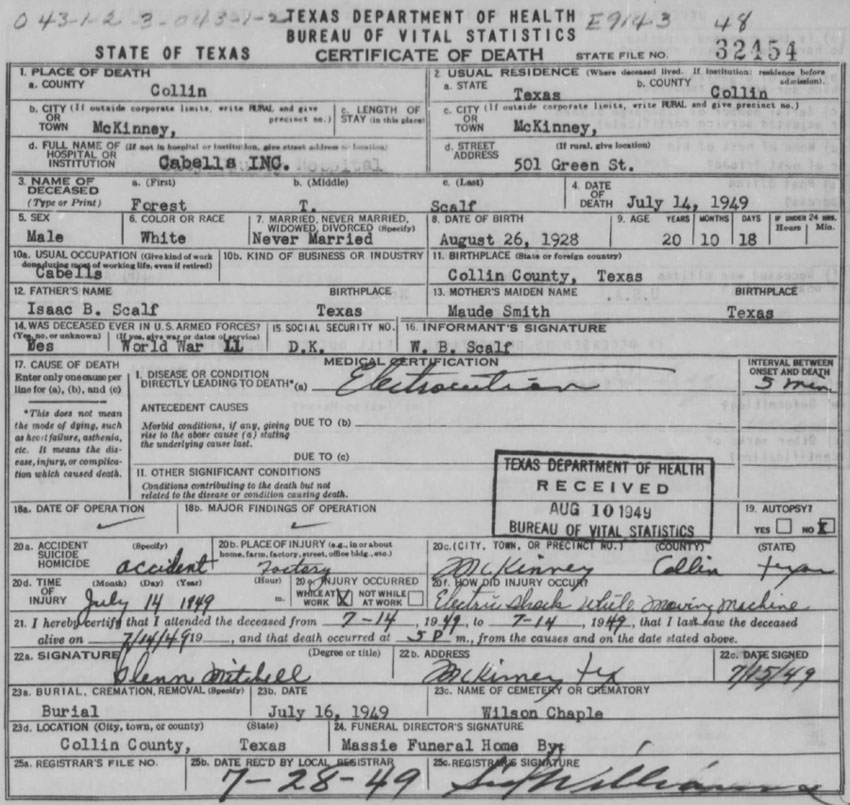 043-1-2-3-043-1-2 TEXAS DEPARTMENT OF HEALTH E914-3 48
BUREAU OF VITAL STATISTICS
STATE OF TEXAS CERTIFICATE OF DEATH STATE FILE NO. 32454
1. PLACE OF DEATH
a. COUNTY Collin
2. USUAL RESIDENCE (Where deceased lived. If institution: residence before admission).
a. STATE Texas b. COUNTY Collin
b. CITY (If outside corporate limits, write RURAL and give precinct no.)
OR
TOWN McKinney,
c. LENGTH OF
STAY (in this place)
c. CITY (If outside corporate limits, write RURAL and give precinct no.)
OR
TOWN McKinney,
d. FULL NAME OF (If not in hospital or institution, give street address or location)
HOSPITAL OR
INSTITUTION Cabells INC. Hospital
d. STREET (If rural, give location)
ADDRESS 501 Green St.
3. NAME OF a. (First) b. (Middle) c. (Last)
DECEASED
(Type or Print) Forest T. Scalf
4. DATE
OF
DEATH July 14, 1949
5. SEX
Male
6. COLOR OR RACE
White
7. MARRIED, NEVER MARRIED,
WIDOWED, DIVORCED (Specify)
Never Married
8. DATE OF BIRTH
August 26, 1928
9. AGE YEARS MONTHS DAYS IF UNDER 24 HRS.
Hours Min.
20 10 18
10a. USUAL OCCUPATION (Give kind of work
done during most of working life, even if retired)
Cabells
10b. KIND OF BUSINESS OR INDUSTRY
11. BIRTHPLACE (State or foreign country)
Collin County, Texas
12. FATHER'S NAME BIRTHPLACE
Isaac B. Scalf Texas
13. MOTHER'S MAIDEN NAME BIRTHPLACE
Maude Smith Texas
14. WAS DECEASED EVER IN U.S. ARMED FORCES?
(Yes, no, or unknown) (If yes, give war or dates of service)
Yes World War II
15. SOCIAL SECURITY NO.
D.K.
16. INFORMANT'S SIGNATURE
W. B. Scalf
17. CAUSE OF DEATH
Enter only one cause per
line for (a), (b), and (c)
*This does not mean
the mode of dying, such
as heart failure, asthenia,
etc. It means the dis-
ease, injury, or complica-
tion which caused death.
MEDICAL CERTIFICATION
I. DISEASE OR CONDITION
DIRECTLY LEADING TO DEATH*(a) Electrocution
INTERVAL BETWEEN
ONSET AND DEATH
5 min
ANTECEDENT CAUSES
Morbid conditions, if any, giving
rise to the above cause (a) stating
the underlying cause last.
DUE TO (b)
DUE TO (c)
II. OTHER SIGNIFICANT CONDITIONS
Conditions contributing to the death but not
related to the disease or condition causing death.
TEXAS DEPARTMENT OF HEALTH
RECEIVED
AUG 10 1949
BUREAU OF VITAL STATISTICS
18a. DATE OF OPERATION
18b. MAJOR FINDINGS OF OPERATION
19. AUTOPSY?
YES NO X
20a. ACCIDENT (Specify)
SUICIDE
HOMICIDE accident
20b. PLACE OF INJURY (e.g., in or about
home, farm, factory, street, office bldg., etc.)
Factory
20c. (CITY, TOWN, OR PRECINCT NO.) (COUNTY) (STATE)
McKinney Collin Texas
20d. TIME (Month) (Day) (Year) (Hour)
OF
INJURY July 14 1949 m.
20e. INJURY OCCURRED
WHILE AT WORK X NOT WHILE AT WORK
20f. HOW DID INJURY OCCUR?
Electric Shock While Moving Machine
21. I hereby certify that I attended the deceased from 7-14, 1949, to 7-14, 1949, that I last saw the deceased
alive on 7/14/49 19, and that death occurred at 5 P m., from the causes and on the date stated above.
22a. SIGNATURE (Degree or title)
Glenn Mitchell
22b. ADDRESS
McKinney Tex
22c. DATE SIGNED
7/15/49
23a. BURIAL, CREMATION, REMOVAL (Specify)
Burial
23b. DATE
July 16, 1949
23c. NAME OF CEMETERY OR CREMATORY
Wilson Chaple
23d. LOCATION (City, town, or county) (State)
Collin County, Texas
24. FUNERAL DIRECTOR'S SIGNATURE
Massie Funeral Home By:
25a. REGISTRAR'S FILE NO.
25b. DATE REC'D BY LOCAL REGISTRAR
7-28-49
25c. REGISTRAR'S SIGNATURE
Sid Williams